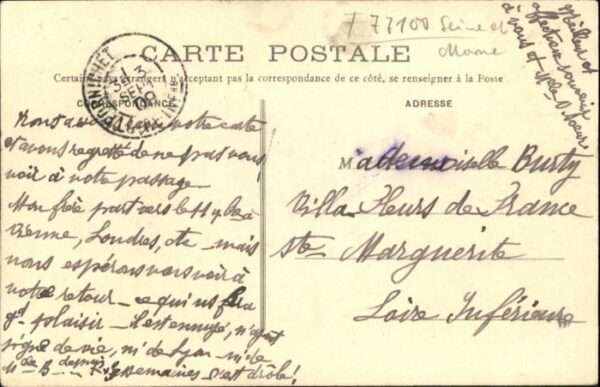 77100 Seine et
Marne
CARTE POSTALE
Certains pays étrangers n'acceptant pas la correspondance de ce côté, se renseigner à la Poste
CORRESPONDANCE
ADRESSE
PORNICHET
Nous avons votre carte
et avons regretté de ne pas vous
voir à votre passage
Mon frère part vers le
Vienne, Londres, etc mais
nous espérons vous voir à
votre retour - ce qui ns fera
gd plaisir - Il est ennuyé, n'ayant
signe de vie, ni de Lyon ni de
Mlle B. depuis 3 semaines c'est drôle!
Mademoiselle Burty
Villa Fleurs de France
Ste Marguerite
Loire Inférieure
Meilleur et
affectueux souvenir
à vous et Mlle